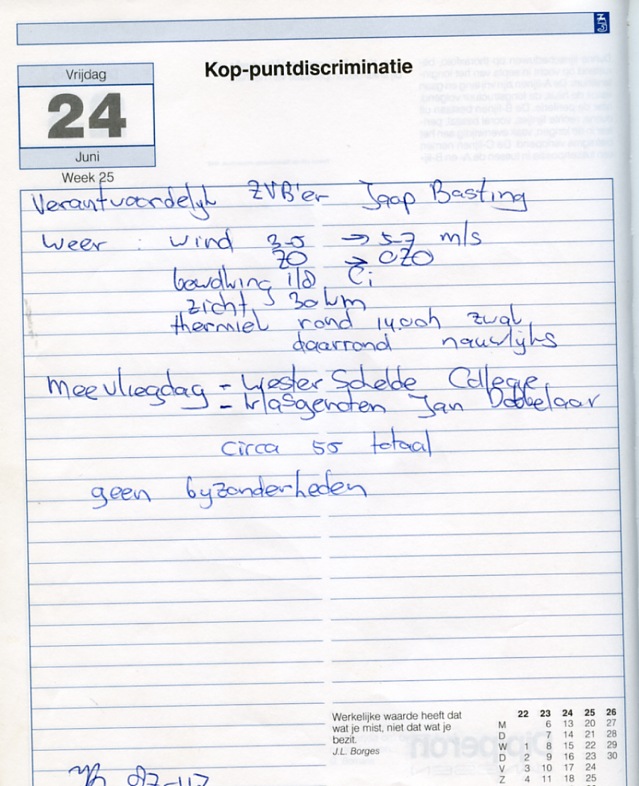 Kop-puntdiscriminatie
Vrijdag
24
Juni
Week 25
Verantwoordelijk ZVB'er Jaap Basting
weer : wind 3-5 → 5-7 m/s
ZO → OZO
bewolking 1/8 Ci
zicht > 30 km
thermiek rond 14.00h zwak
daarrond nauwlijks
Meevliegdag - Wester Schelde College
- klasgenoten Jan Dobbelaar
circa 50 totaal
geen byzonderheden
Werkelijke waarde heeft dat
wat je mist, niet dat wat je
bezit.
J.L. Borges
22 23 24 25 26
M 6 13 20 27
D 7 14 21 28
W 1 8 15 22 29
D 2 9 16 23 30
V 3 10 17 24
Z 4 11 18 25